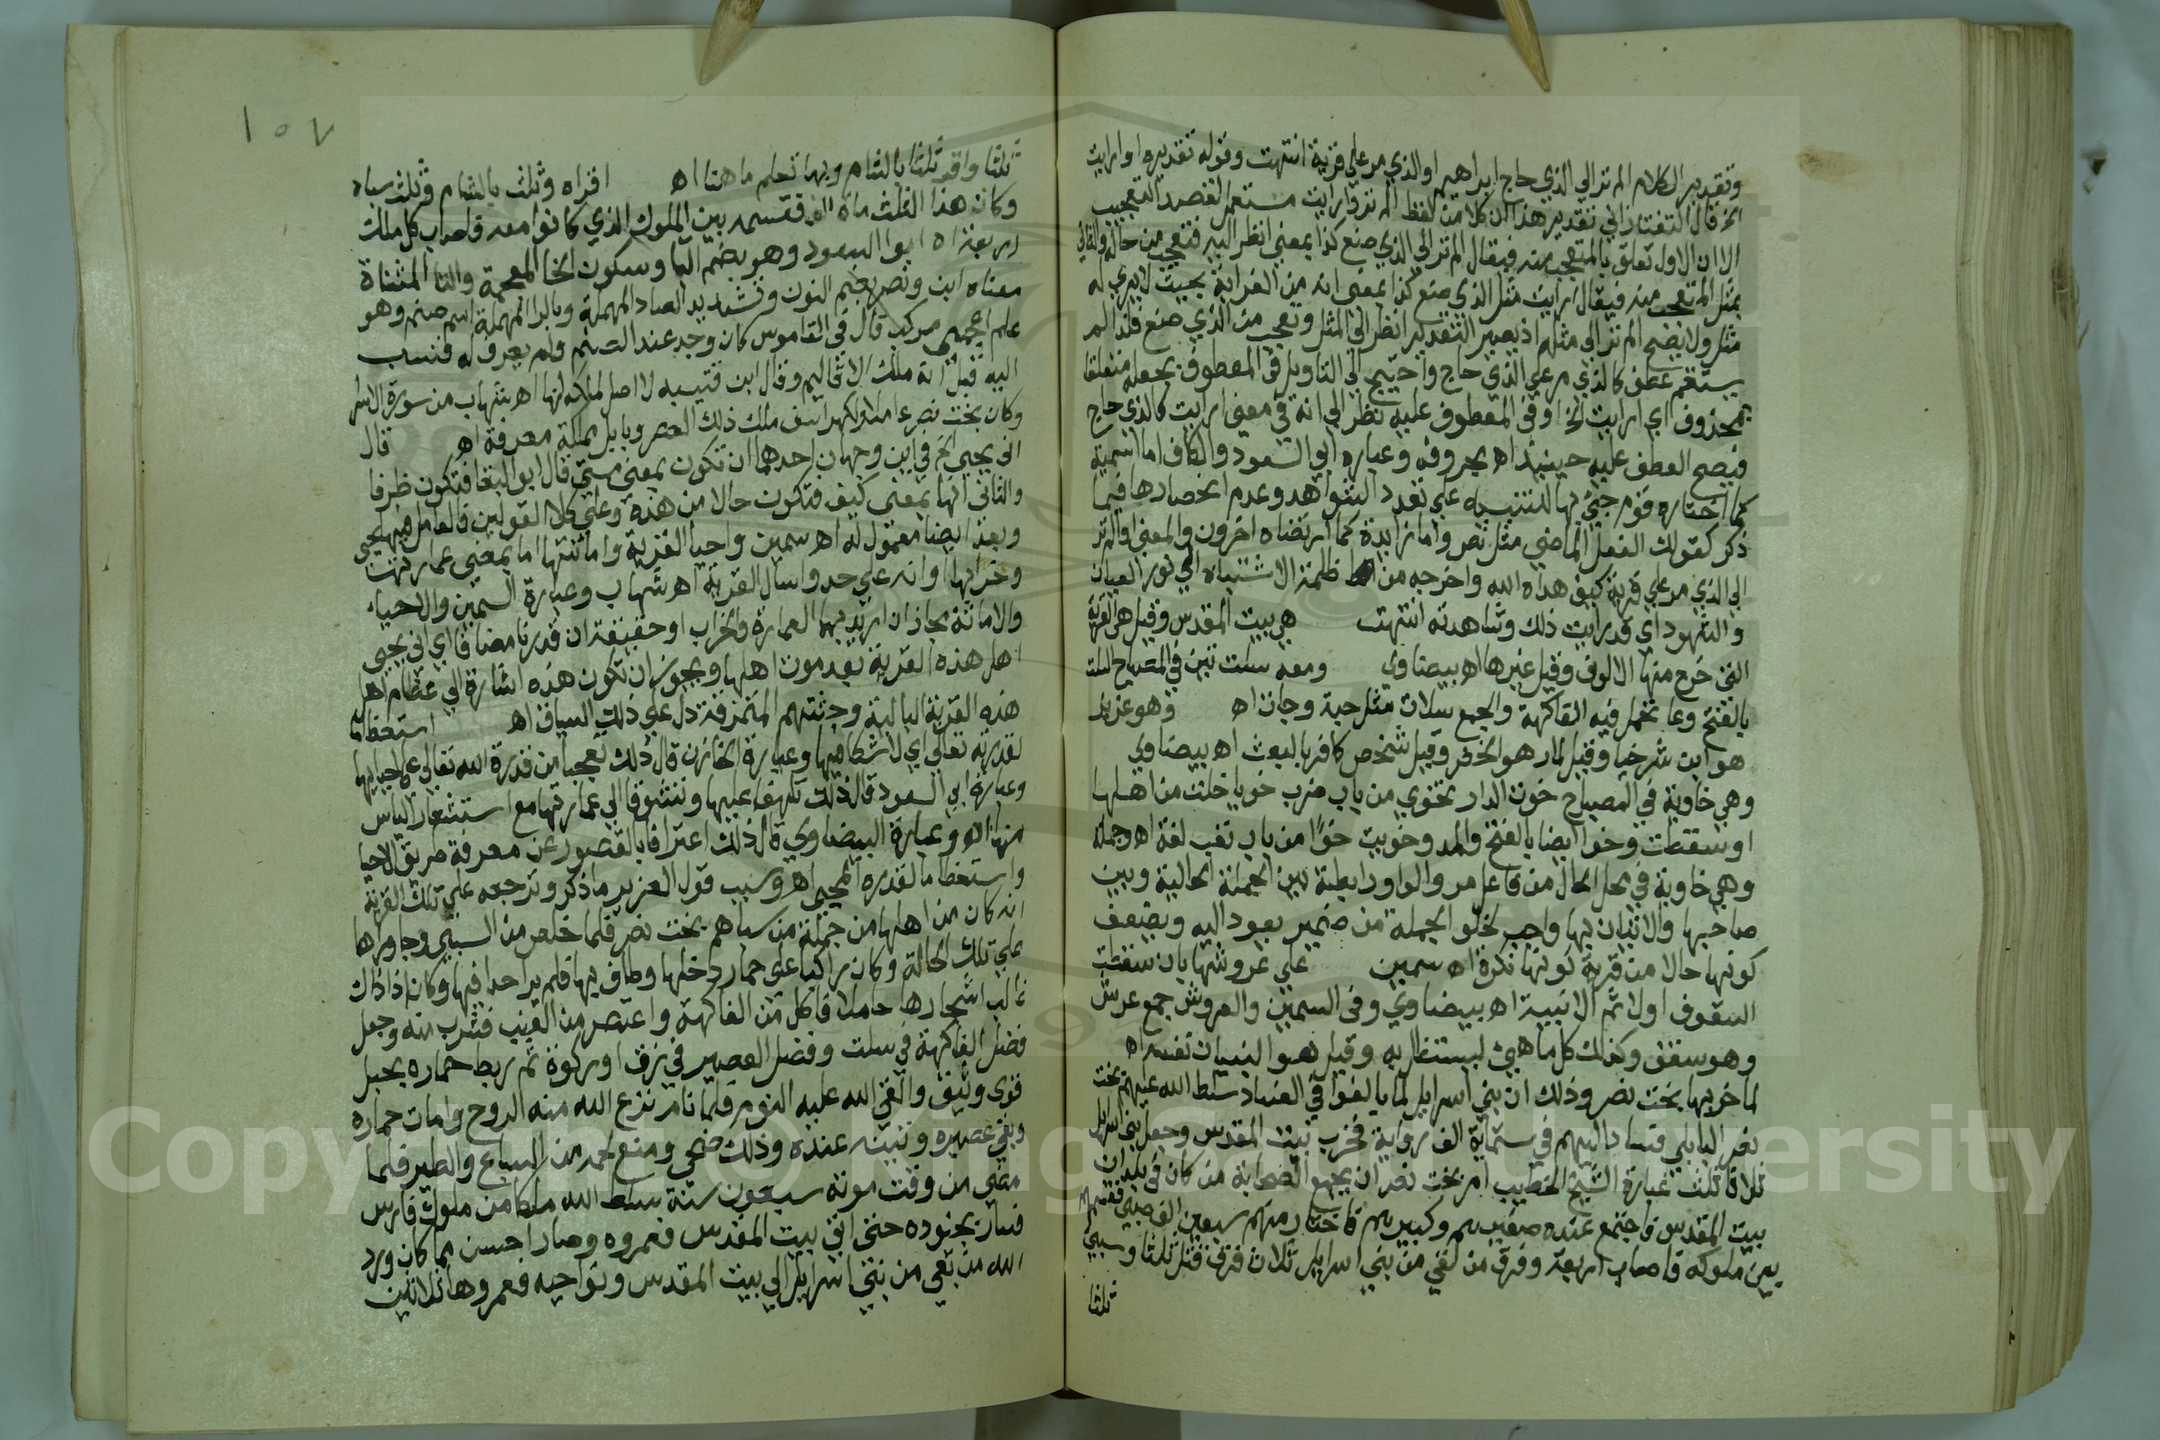 وتقدير الكلام الم تر الي الذي حاج ابراهيم او الذي مر علي قرية انتهت وقوله تقديره او ارايت
الخ قال التفتازاني تقدير هذا ان كلا من لفظ الم تر وارايت مستعمل لقصد التعجيب
الا ان الاول تعلق بالمتعجب منه فيقال الم تر الي الذي صنع كذا بمعني انظر اليه فتعجب من حاله والثاني
بمثل المتعجب منه فيقال ارايت مثل الذي صنع كذا بمعني انه من الغرابة بحيث لا يري له
مثل ولا يصح الم تر الي مثله اذ يصير التقدير انظر الي المثل وتعجب من الذي صنع فلذا لم
يستقم عطف كالذي مر علي الذي حاج واحتيج الي التاويل في المعطوف بجعله متعلقا
بمحذوف اي ارايت الخ او في المعطوف عليه نظر الي انه في معني ارايت كالذي حاج
فيصح العطف عليه حينئذ اه بحروفه وعبارة ابو السعود والكاف اما اسمية
كما اختاره قوم جيئ بها للتنبيه علي تعدد الشواهد وعدم انحصارها فيما
ذكر كقولك الفعل الماضي مثل نصر واما زايدة كما ارتضاه اخرون والمعني والم تر
الي الذي مر علي قرية كيف هداه الله واخرجه من ظلمة الاشتباه الي نور العيان
والشهود اي قد رايت ذلك وشاهدته انتهت هي بيت المقدس وقيل هي القرية
التي خرج منها الالوف وقيل غيرها اه بيضاوي ومعه سلة تين في المصباح السلة
بالفتح وعا تحمل فيه الفاكهة والجمع سلات مثل حبة وجات اه وهو عزير
هو ابن شرخيا وقيل لمار هو الخضر وقيل شخص كافر بالبعث اه بيضاوي
وهي خاوية في المصباح خوت الدار تخوي من باب ضرب خويا خلت من اهلها
او سقطت وخوا ايضا بالفتح والمد وخويت خوا من باب تعب لغة اه وجملة
وهي خاوية في محل الحال من فاعل مر والواو رابطة بين الجملة الحالية وبين
صاحبها والاتيان بها واجب لخلو الجملة من ضمير يعود اليه ويضعف
كونها حالا من قرية كونها نكرة اه سمين علي عروشها بان سقطت
السقوف اولا ثم الابنية اه بيضاوي وفي السمين والعروش جمع عرش
وهو سقف وكذلك كل ما هيئ ليستظل به وقيل هو البنيان نفسه اه
لما خربها بخت نصر وذلك ان بني اسرايل لما بالغوا في الفساد سلط الله عليهم بخت
نصر البابلي فسار اليهم في ستماية الف راية فخرب بيت المقدس وجعل بني اسرايل
ثلاثا ثلث عبارة الشيخ الخطيب امر بخت نصر ان يجمع الصحابة من كان في بلدان
بيت المقدس فاجتمع عنده صغيرهم وكبيرهم فاختار منهم سبعين الف صبي فقسمهم
بين ملوكه فاصاب اربعة وفرق من بقي من بني اسرايل ثلاث فرق فقتل ثلثا وسبي
ثلثا
١٥٧
ثلثا واقر ثلثا بالشام وبها تعلم ما هنا اه اقراه وثلث بالشام وثلث سباه
وكان هذا الثلث ماة الف فقسمه بين الملوك الذي كانوا معه فاصاب كل ملك
اربعة اه ابوا السعود وهو بضم البا وسكون الخا المعجمة والتا المثناة
معناه ابن ونصر بفتح النون وتشديد الصاد المهملة وبالرا المهملة اسم صنم وهو
علم اعجمي مركب قال في القاموس كان وجد عند الصنم ولم يعرف له فنسب
اليه قيل انه ملك الاقاليم وقال ابن قتيبه لا اصل لملكه لها اه شهاب من سورة الاسرا
وكان بخت نصر عاملا لكهراسف ملك ذلك العصر وبابل مملكة معرفة اه قال
اني يحيي الخ في اين وجهان احدهما ان تكون بمعني متي قال ابو البقا فتكون ظرفا
والثاني انها بمعني كيف فتكون حالا من هذه وعلي كلا القولين فالعامل فيها يحيي
وبعد ايضا معمول له اه سمين واحيا القرية واماتتها اما بمعني عمارتها
وخرابها او انه علي حد واسال القرية اه شهاب وعبارة السمين والاحياء
والاماتة مجاز ان اريد بهما العمارة والخراب او حقيقة ان قدرنا مضافا اي اني يحيي
اهل هذه القرية بعد موت اهلها ويجوز ان تكون هذه اشارة الي عظام اهل
هذه القرية البالية وجثتهم المتمزقة دل علي ذلك السياق اه استعظاما
لقدرته تعالي اي لا شكا فيها وعبارة الخازن قال ذلك تعجبا من قدرة الله تعالي علي احيايها
وعبارة ابي السعود قال ذلك تلهفا عليها وتشوقا الي عمارتها مع استشعار الياس
منها اه وعبارة البيضاوي قال ذلك اعترافا بالقصور عن معرفة طريق الاحيا
واستعظاما لقدرة المحيي اه وسبب قول العزير ما ذكر وترجعه علي تلك القرية
انه كان من اهلها من جملة من سباهم بخت نصر فلما خلص من السبي وجا وراها
علي تلك الحالة وكان راكبا علي حمار دخلها وطاف بها فلم ير احدا فيها وكان اذ ذاك
غالب اشجارها حاملا فاكل من الفاكهة واعتصر من العنب فشرب منه وجعل
فضل الفاكهة في سلة وفضل العصير في زق او ركوة ثم ربط حماره بحبل
قوي وثيق والقي الله عليه النوم فلما نام نزع الله منه الروح وامات حماره
وبقي عصيره وتينه عنده وذلك ضحي ومنع لحمه من السباع والطير فلما
مضي من وقت موته سبعون سنة سلط الله ملكا من ملوك فارس
فسار بجنوده حتي اتي بيت المقدس فعمروه وصار احسن مما كان ورد
الله من بقي من بني اسرايل الي بيت المقدس ونواحيه فعمروها ثلاثين
Copyright © King Saud University